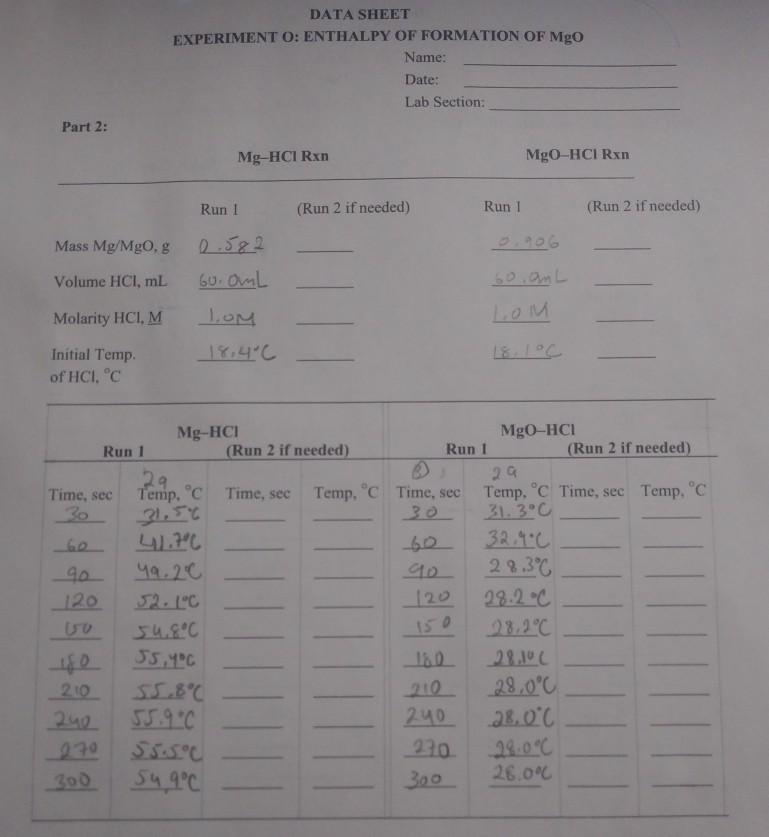 DATA SHEET
EXPERIMENT O: ENTHALPY OF FORMATION OF MgO
Name:
Date:
Lab Section:
Part 2:
Mg–HCl Rxn MgO–HCl Rxn
Run 1 (Run 2 if needed) Run 1 (Run 2 if needed)
Mass Mg/MgO, g 0.582 0.906
Volume HCl, mL 60.0mL 60.0mL
Molarity HCl, M 1.0M 1.0 M
Initial Temp. 18.4°C 18.1°C
of HCl, °C
Mg–HCl MgO–HCl
Run 1 (Run 2 if needed) Run 1 (Run 2 if needed)
29 29
Time, sec Temp, °C Time, sec Temp, °C Time, sec Temp, °C Time, sec Temp, °C
30 31.5°C 30 31.3°C
60 41.7°C 60 32.4°C
90 49.2°C 90 28.3°C
120 52.1°C 120 28.2°C
150 54.8°C 150 28.2°C
180 55.4°C 180 28.1°C
210 55.8°C 210 28.0°C
240 55.9°C 240 28.0°C
270 55.5°C 270 28.0°C
300 54.9°C 300 28.0°C